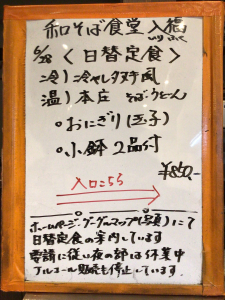 和そば食堂 入福
6/28 〈日替定食〉
冷)冷ヤしタヌキ風
温)本庄 そば・うどん
・おにぎり(玉子)
・小鉢2品付
¥850-
入口こちら
ホームページ、グーグルマップ(写真)にて
日替定食の案内しています
要請に従い夜の部は休業中
アルコール類販売も停止しています。